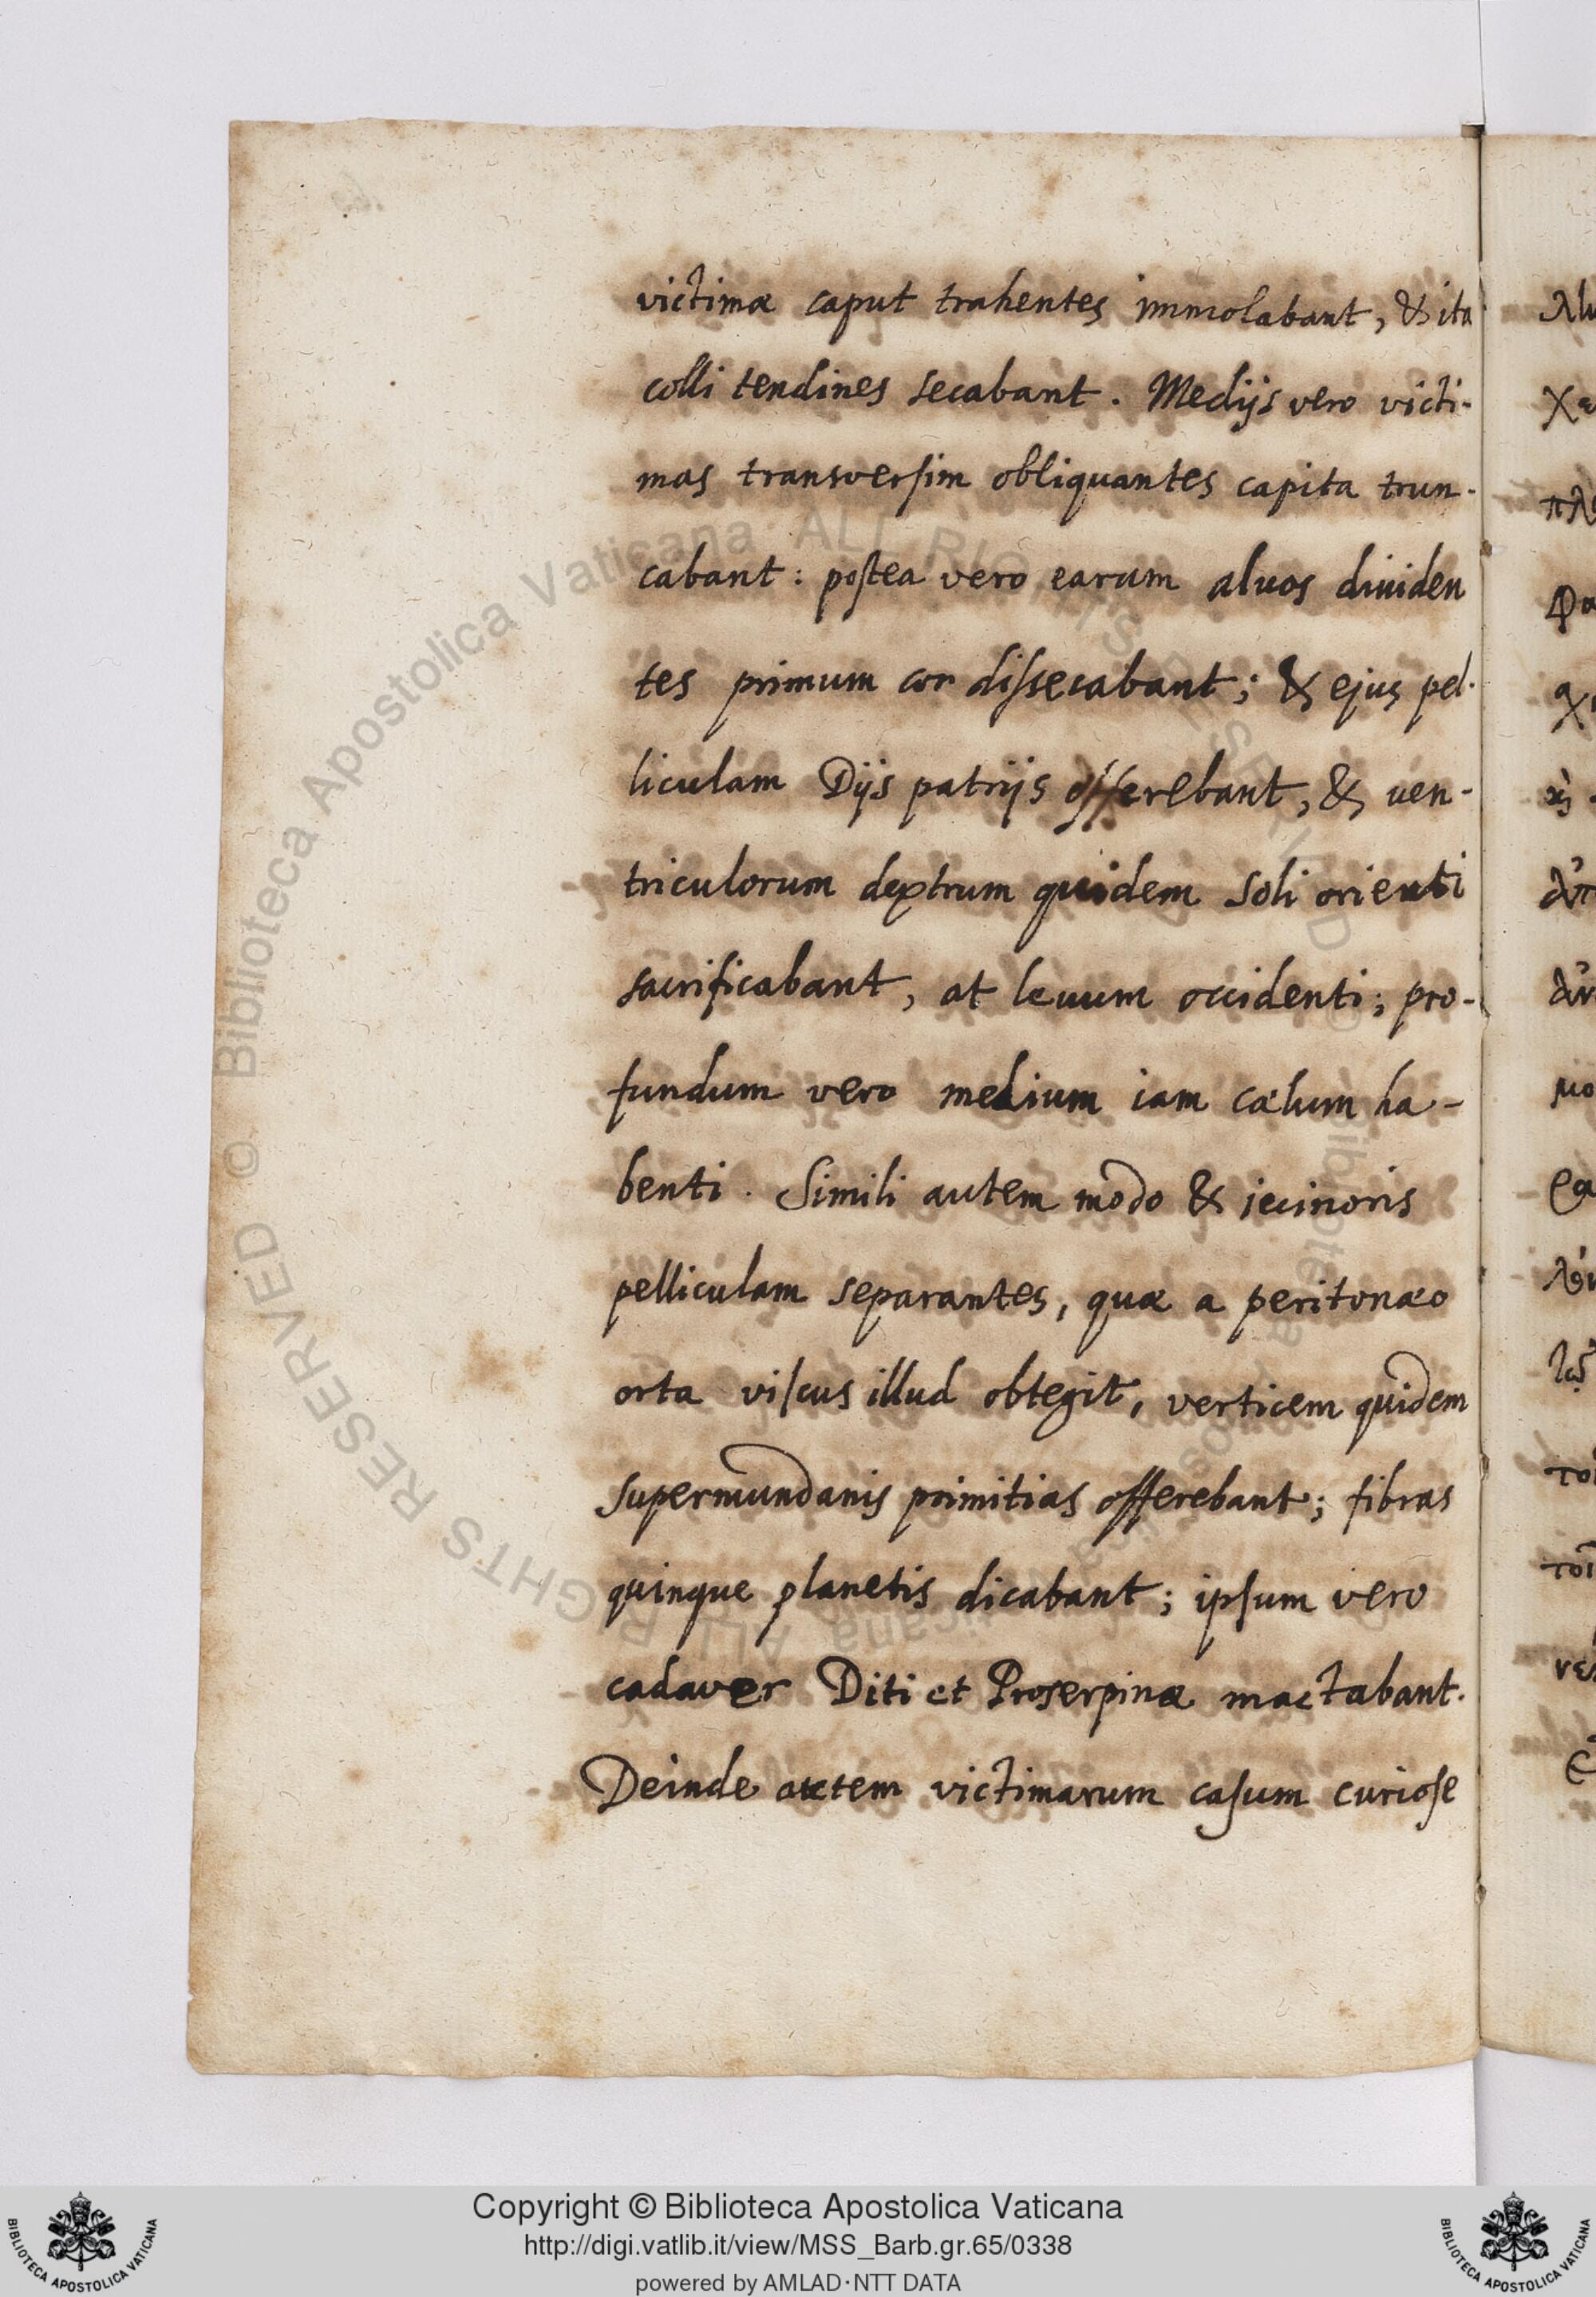 victimæ caput trahentes immolabant, & ita
colli tendines secabant. Medijs vero victi-
mas transversim obliquantes capita trun-
cabant: postea vero earum aluos diuiden
tes primum cor dissecabant; & ejus pel-
liculam Dijs patrijs offerebant, & uen-
triculorum dextrum quidem soli orienti
sacrificabant, at leuum occidenti; pro-
fundum vero medium iam cælum ha-
benti. Simili autem modo & jecinoris
pelliculam separantes, quæ a peritonæo
orta viscus illud obtegit, verticem quidem
supermundanis primitias offerebant; fibras
quinque planetis dicabant; ipsum vero
cadaver Diti et Proserpinæ mactabant.
Deinde autem victimarum casum curiose
Copyright © Biblioteca Apostolica Vaticana
http://digi.vatlib.it/view/MSS_Barb.gr.65/0338
powered by AMLAD·NTT DATA
BIBLIOTECA APOSTOLICA VATICANA
BIBLIOTECA APOSTOLICA VATICANA